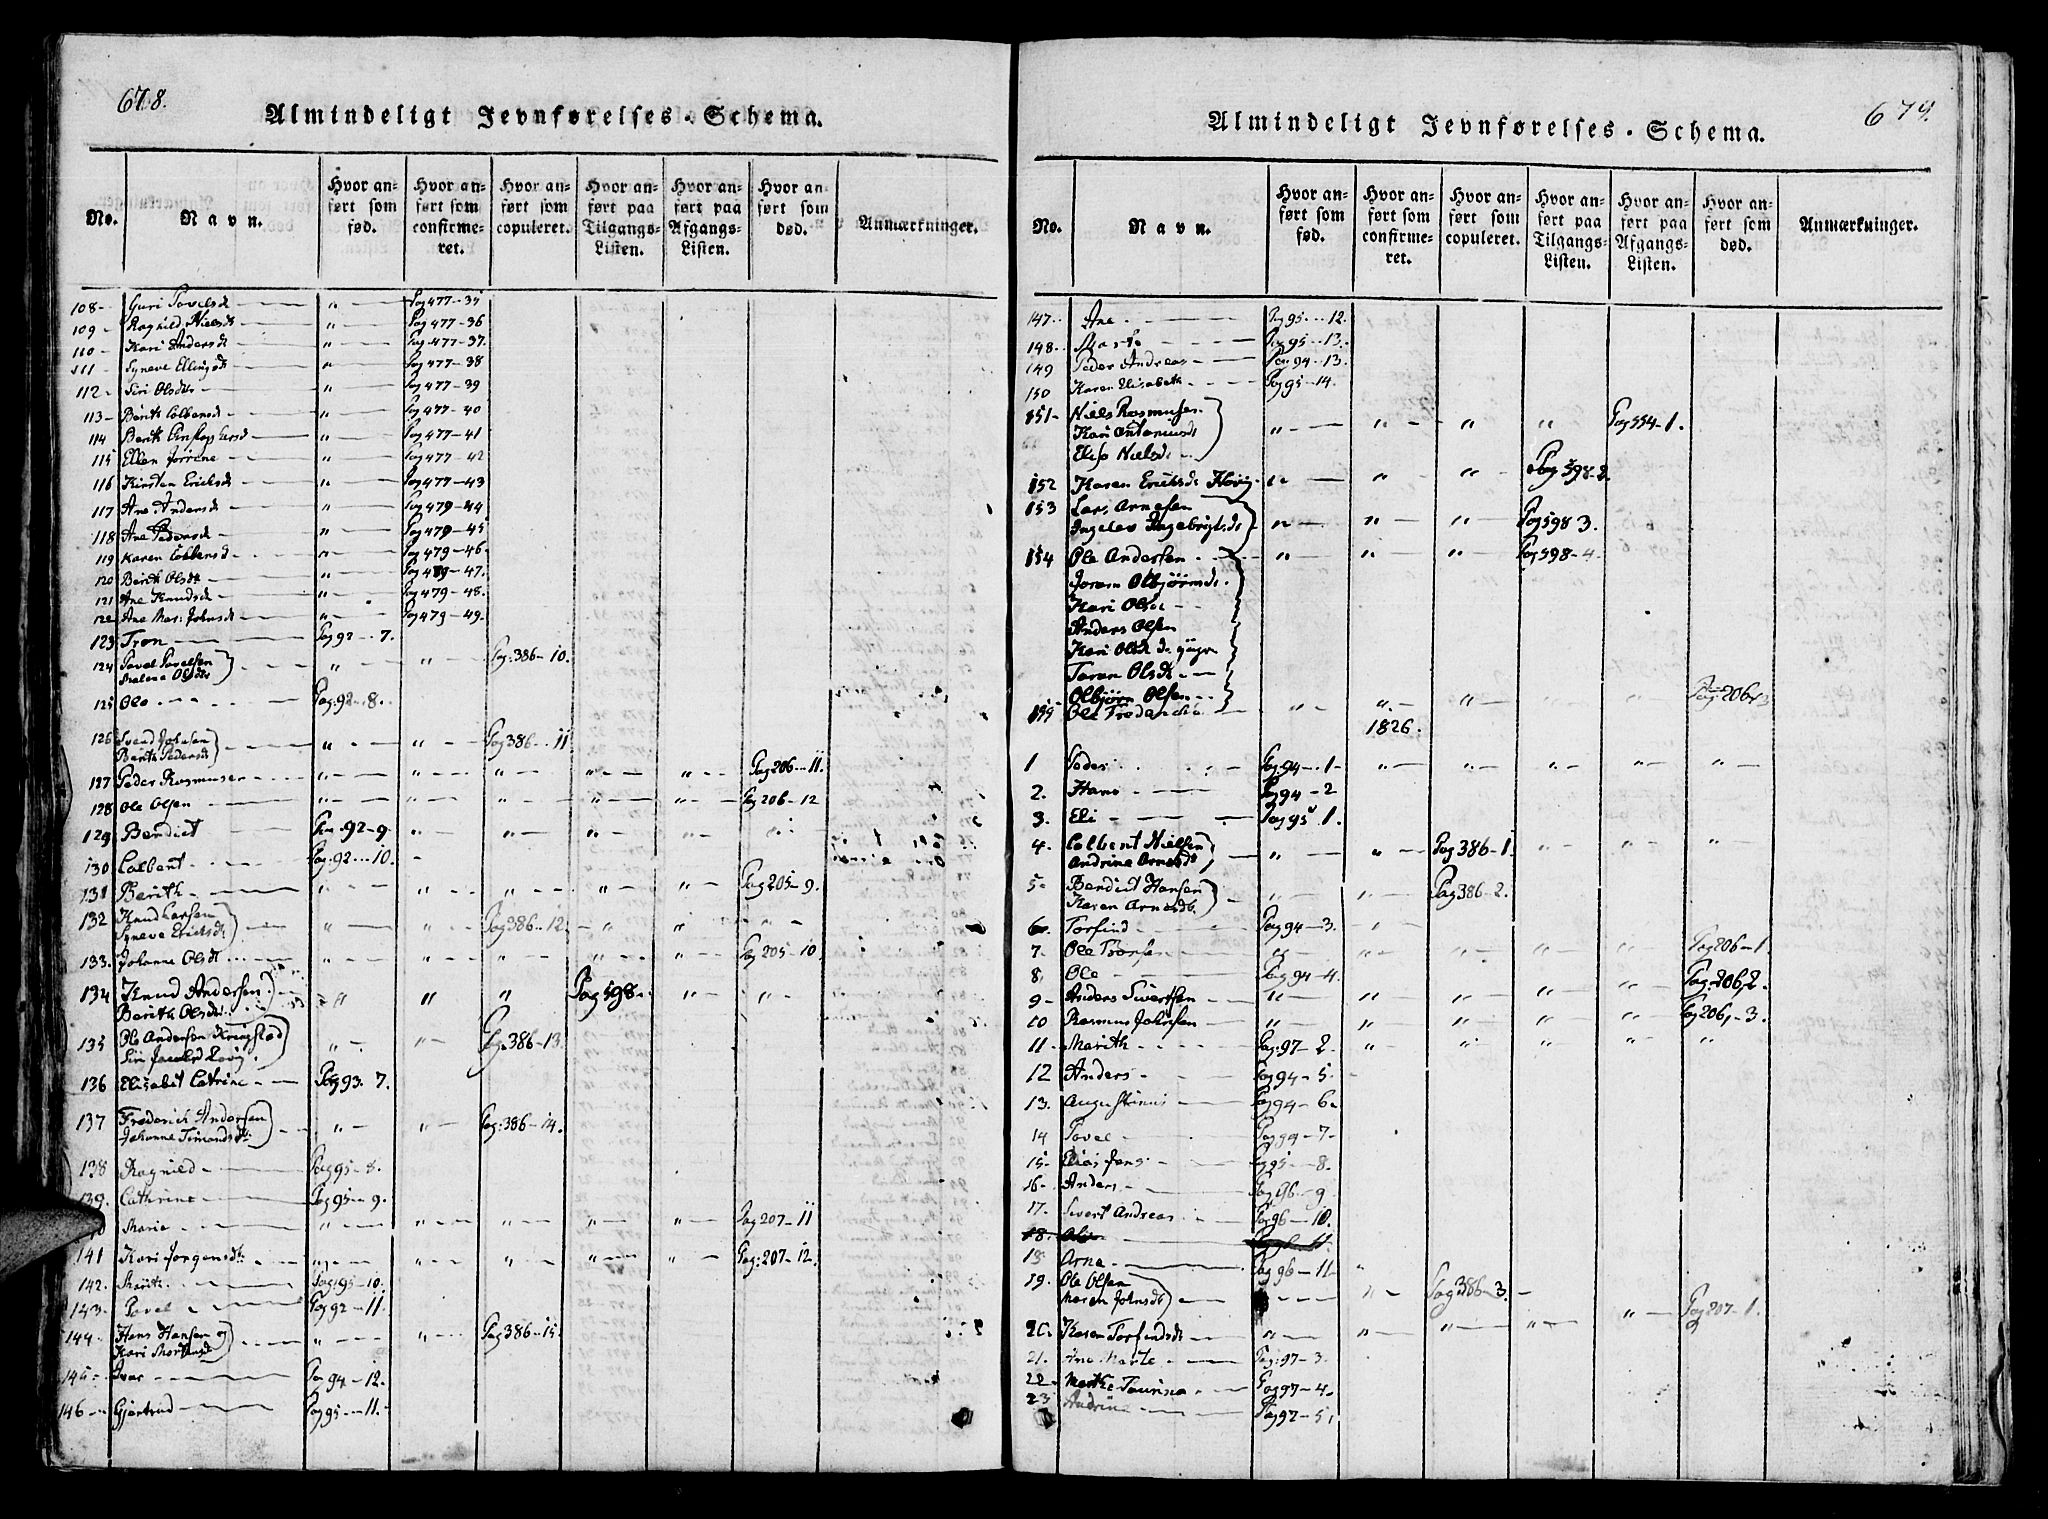 678.
Almindeligt Jevnførelses-Schema.
No. Navn. Hvor anført som fød. Hvor anført som confirmeret. Hvor anført som copuleret. Hvor anført paa Tilgangs-Listen. Hvor anført paa Afgangs-Listen. Hvor anført som død. Anmærkninger.
108 - Guri Povelsd — " — Pag 477-35
109 - Ragnild Nielsdt — " — Pag 477-36
110 - Kari Andersdt — " — Pag 477-37.
111 - Syneve Ellingsdt — " — Pag 477-38
112 - Siri Olsdtr — " — Pag 477-39
113 - Berith Colbensdt — " — Pag 477-40
114 Berith — " — Pag 477-41
115 Ellen — " — Pag 477-42
116 Kirsten Ericksdt — " — Pag 477-43
117 Ane Andersdt — " — Pag 479-44
118 Ane Pedersdt — " — Pag 479-45
119 Karen — " — Pag 479-46
120 Berith Olsdt — " — Pag 479-47.
121 Ane Knudsdt — " — Pag 479-48.
122 Ane Mari Johnsdt — " — Pag 479-49.
123 Tron — Pag 92...7.
124 Povel Povelsen
Malena Olsdtr — " — " — Pag: 386-10.
125 Ole — Pag. 92-8.
126 Svend Johnsen
Berith Pedersdt — " — " — Pag 386...11
127 Peder Rasmusen — " — " — " — " — " — Pag 206...11.
128 Ole Olsen — " — " — " — " — " — Pag 206-12
129 Bendict — Pag. 92-9. " — " — " — " — "
130 Colbent — Pag. 92...10.
131 Berith — " — " — " — " — " — Pag 205-9.
132 Knud Larsen
Syneve Ericksdt — " — " — Pag 386..12. — " — " — "
133. Johanne Olsdt — " — " — " — " — " — Pag 205-10.
134 Knud Andersen
Berith Olsdt — " — " — " Pag 598 — " — "
135 Ole Andersen Kringstad
Siri Jacobsd — " — " — Pag. 386-13.
136 Elisabet Catrine — Pag 93. 7.
137 Frederich Andersen
Johanne Timandsdt — " — " — Pag: 386-14.
138 Ragnild — Pag 95-8.
139. Cathrine — Pag 95-9.
Marie — " — " — " — " — " — Pag 207-11
141 Kari Jørgensdt — " — " — " — " — " — Pag: 207-12.
142. Marith — Pag 95-10.
143 — Povel — Pag 92-11.
144 — Hans Hansen og
Kari Mortensdt — " — " — Pag 386-15.
145 — Ivar — Pag 94-12.
146 — Gjertrud — Pag 95...11.
679.
Almindeligt Jevnførelses-Schema.
No. Navn. Hvor anført som fød. Hvor anført som confirmeret. Hvor anført som copuleret. Hvor anført paa Tilgangs-Listen. Hvor anført paa Afgangs-Listen. Hvor anført som død. Anmærkninger.
147. Ane — Pag 95...12.
148. — Pag 95...13.
149 Peder Andreas — Pag. 94..13.
150 Karen Elisabeth — Pag 95-14.
151 - Niels Rasmusen.
Kari
Elise Nielsd — " — " — " — " Pag 554-1.
152 Karen Ericksdt — " — " — " — Pag 598-2
153 Lars Arnesen
Ingelev Ingebrigtsdt — " — " — " — Pag 598 3.
154 Ole Andersen — " — " — " — Pag 598-4.
Joram Olbjørnsdt.
Kari Olsdt
Anders Olsen
Kari Olsdt
Toren Olsdt
Olbjørn Olsen
155 Ole — " — " — " — " — " Pag: 206
1826.
1 Peder — Pag. 94...1 — " — " — " — " — "
2. Hans — Pag 94-2
3. Eli — Pag 95. 1.
4. Colbent Nielsen
Andrina Arnesdt — " — " — Pag 386-1. " — " — "
5- Bendict Hansen
Karen Arnesdt — " — " — Pag 386-2.
6. Torfind — Pag 94-3. "
7. Ole — " — " — " — " — " — Pag 206-1.
8. Ole — Pag 94-4. — Pag 206,2.
9 - Anders Sivertsen — " — " — " — " — "
10 Rasmus Johnsen — " — " — " — " — " — Pag 206-3.
11 - Marith — Pag: 97-2. " — " — " — " — "
12 Anders — Pag 94-5.
13. Augustinus — Pag 94-6.
14 Povel — Pag 94-7-
15- Elias Jens — Pag 95-8.
16- Anders — Pag 96-9
17. Sivert Andreas — Pag 96-10.
18. — 11.
Arne — Pag 96-11
19. Ole Olsen
Maren Johnsdt — " — Pag 386-3.
20. Karen Torfindsdt — " — " — " — " — " — Pag 207-1.
21. Ane Marte — Pag: 97-3.
22- Marthe — Pag 97-4.
23 Andrine — Pag 97-5.